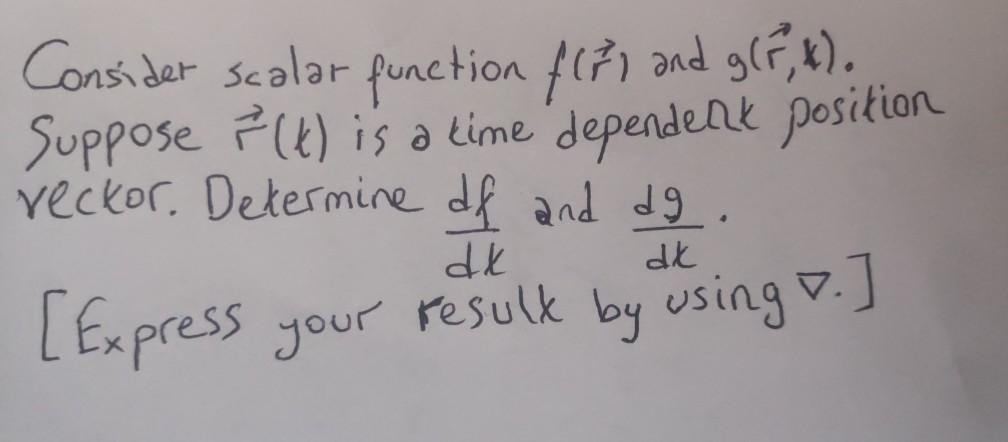 Consider scalar function f(r⃗) and g(r⃗,t).
Suppose r⃗(t) is a time dependent position
vector. Determine df/dt and dg/dt.
[Express your result by using ∇.]